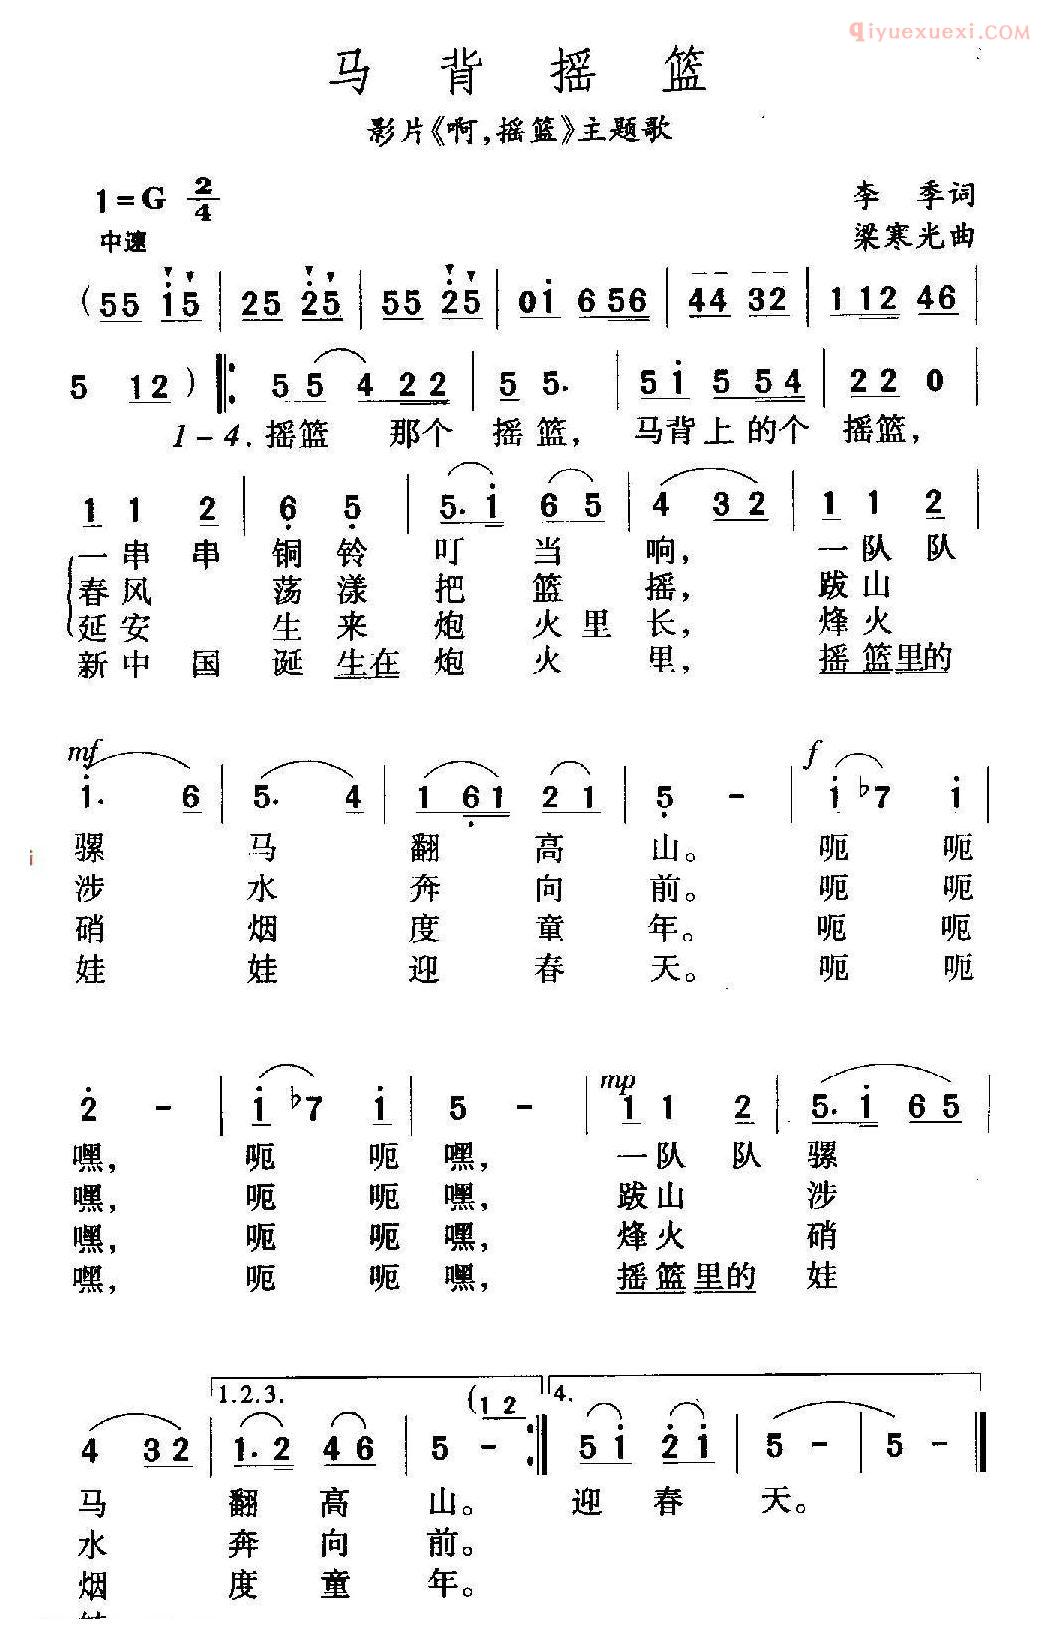 qiyuexuexi.COM
马背摇篮
影片《啊,摇篮》主题歌
1=G 2/4
李季词
中速
梁寒光曲
(55 i5 | 25 25 | 55 25 | 0i 656 | 44 32 | 112 46 |
5 12 ) |: 55 422 | 5 5. | 5i 554 | 22 0 |
1-4. 摇篮 那个 摇篮, 马背上的个 摇篮,
1 1 2 | 6 5 | 5. i 65 | 4 32 | 1 1 2 |
一串串铜铃叮当响, 一队队
春风荡漾把篮摇, 跋山
延安生来炮火里长, 烽火
新中国诞生在炮火里, 摇篮里的
mf f
i. 6 | 5. 4 | 1 61 21 | 5 - | i ♭7 i |
骡马翻高山。 呃呃
涉水奔向前。 呃呃
硝烟度童年。 呃呃
娃娃迎春天。 呃呃
mp
2 - | i ♭7 i | 5 - | 1 1 2 | 5. i 65 |
嘿, 呃呃嘿, 一队队骡
嘿, 呃呃嘿, 跋山涉
嘿, 呃呃嘿, 烽火硝
嘿, 呃呃嘿, 摇篮里的娃
1.2.3. (12 4.
4 32 | 1. 2 46 | 5 - :| 5i 2i | 5 - | 5 - |
马翻高山。 迎春天。
水奔向前。
烟度童年。